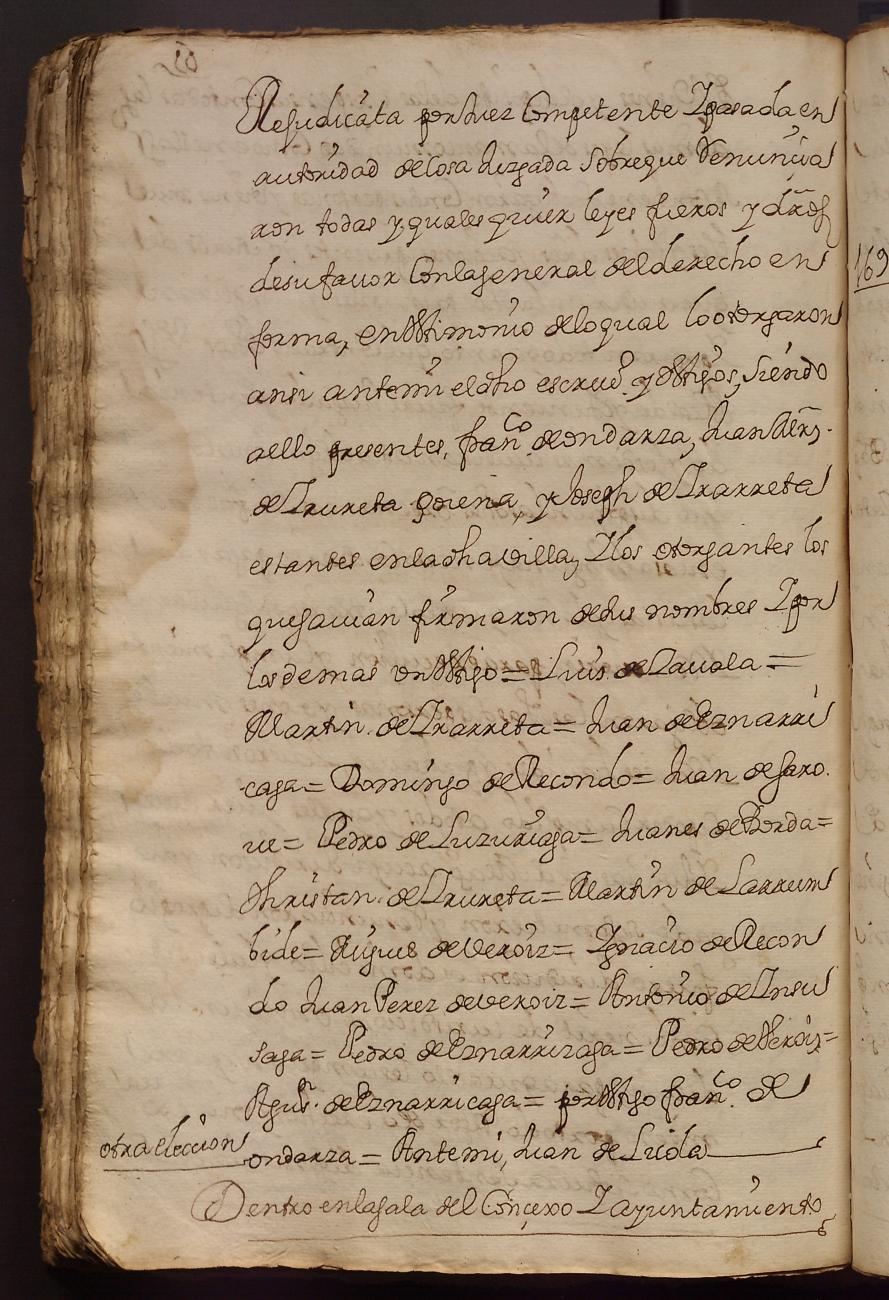 Rejudicata por Juez Competente Ypasada en
autoridad de Cosa Juzgada Sobreque Renuncia
ron todas y quales quier leyes fueros y drõs
desufauor Conlageneral delderecho en
forma, entestimonio deloqual looctorgaron
ansi antemi eldho escrivº. y testigos, Siendo
aello presentes, franco. deondarza, Juan
deIrureta goiena, y Joseph deIrarreta
estantes enladhavilla, Ylos otorgantes los
quesauian firmaron desus nombres Ypor
losdemas untestigo = Luis deZauala =
Martin. deIrarreta = Juan deEznarri
caga = Domingo deRecondo = Juan deGaro.
ue = Pedro deLuzuriaga = Juanes deBorda =
Christan. deIrureta = Martin de Larrum
bide = Miguel deveroiz = Ygnacio deRecon
do Juan Perez deveroiz = Antonio deInsu
saga = Pedro deEznarrizaga = Pedro deVeroiz =
Agus. deEznarricaga = portestigo franco. de
otra eleccion
ondarza = Antemi, Juan de
Dentro enlasala del Conçexo Yayuntamiento
169